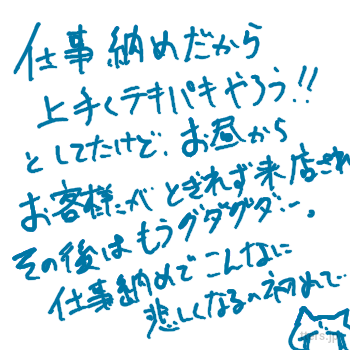 仕事納めだから
上手くテキパキやろう!!
としてたけど、お昼から
お客様がとぎれず来店され
その後はもうグダグダ…。
仕事納めでこんなに
悲しくなるの初めて